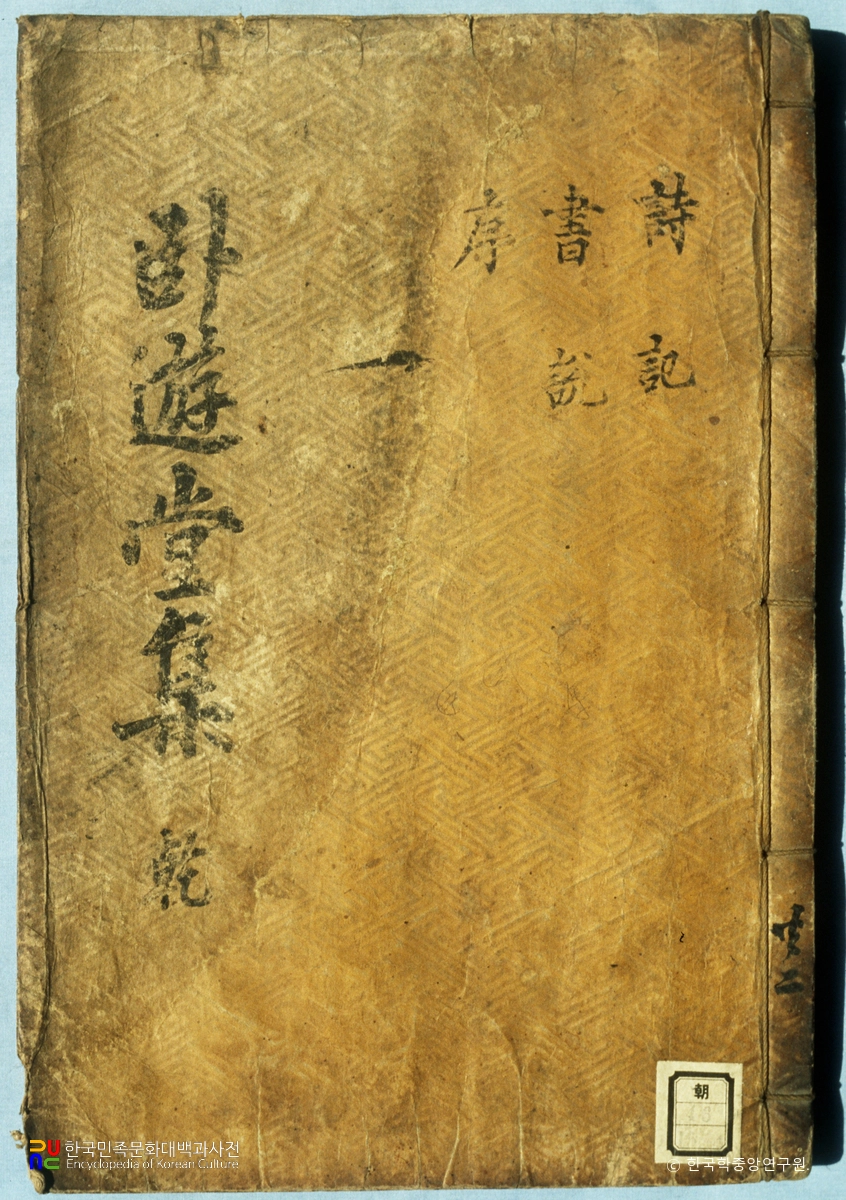 詩 記
書 說
序
一
卧遊堂集 乾
共二
朝
한국민족문화대백과사전
Encyclopedia of Korean Culture
© 한국학중앙연구원